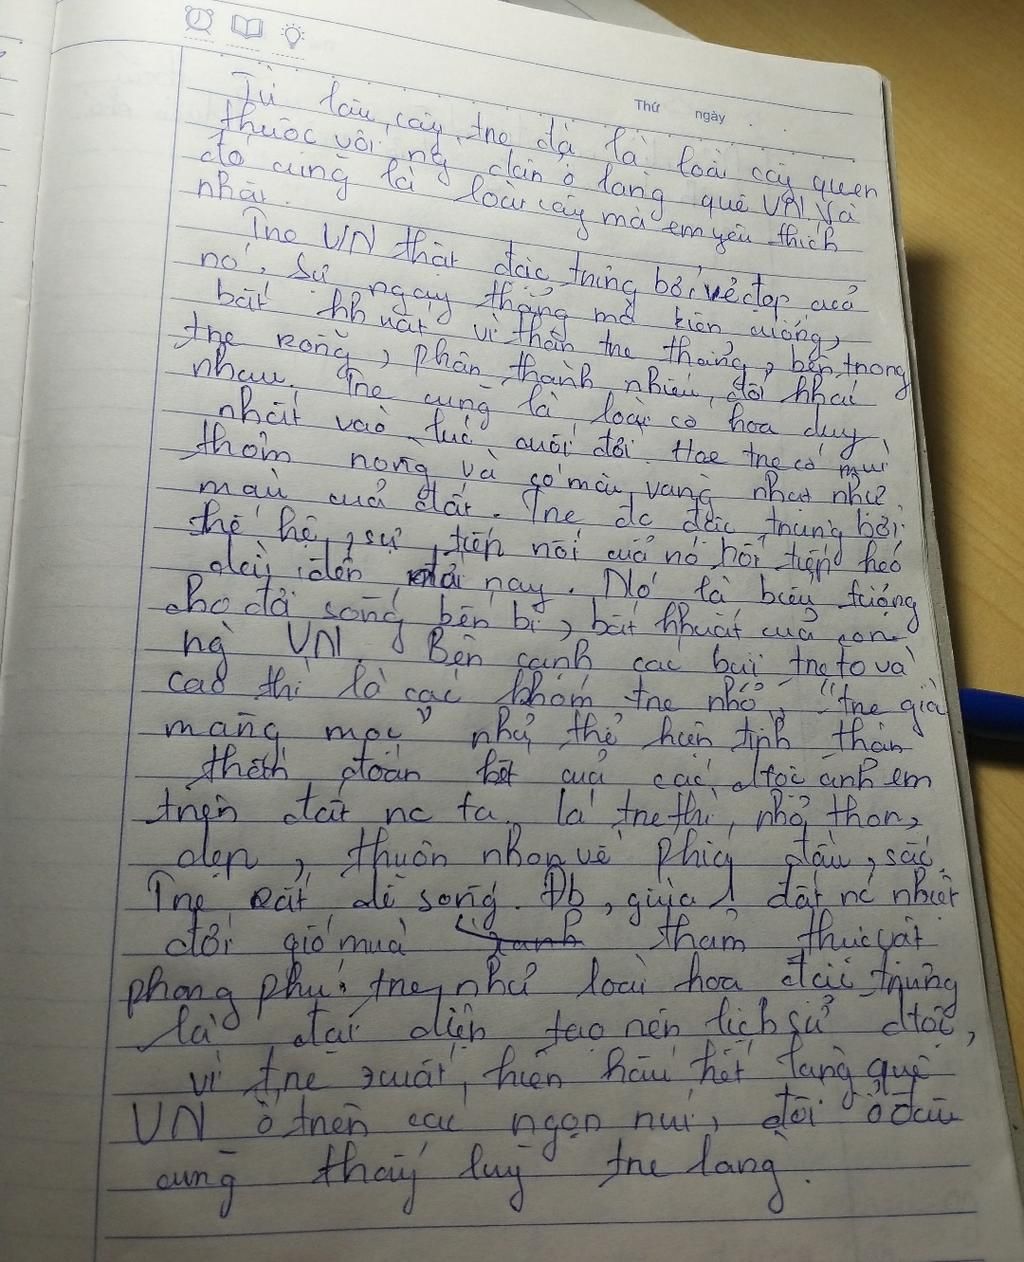 Thứ ngày
Từ lâu, cây tre đã là loài cây quen
thuộc với ng dân ở làng quê VN. Và
đó cũng là loài cây mà em yêu thích
nhất.
Tre VN thật đặc trưng bởi vẻ đẹp của
nó. Sự ngay thẳng mà kiên cường,
bất khuất vì thân tre thẳng, bên trong
tre rỗng, phân thành nhiều đốt khác
nhau. Tre cũng là loài có hoa duy
nhất vào lúc cuối đời. Hoa tre có mùi
thơm nồng và có màu vàng nhạt như
màu của đất. Tre đc đặc trưng bởi
thế hệ, sự tiếp nối của nó hồi tiếp
dài đến nay. Nó là biểu tượng
cho đời sống bền bỉ, bất khuất của con
ng VN. Bên cạnh các bụi tre to và
cao thì là các khóm tre nhỏ, "tre già
măng mọc" như thể hiện tinh thần
đoàn kết của các dtộc anh em
trên đất nc ta. Lá tre thì nhỏ thon,
dẹp, thuôn nhọn về phía đầu, sắc.
Tre rất dễ sống. Đb, giữa 1 đất nc nhiệt
đới gió mùa thảm thực vật
phong phú, tre như loài hoa đặc trưng
là đại diện tạo nên lịch sử dtộc,
vì tre xuất hiện hầu hết làng quê
VN ở trên các ngọn núi, đồi ở đâu
cũng thấy luỹ tre làng.